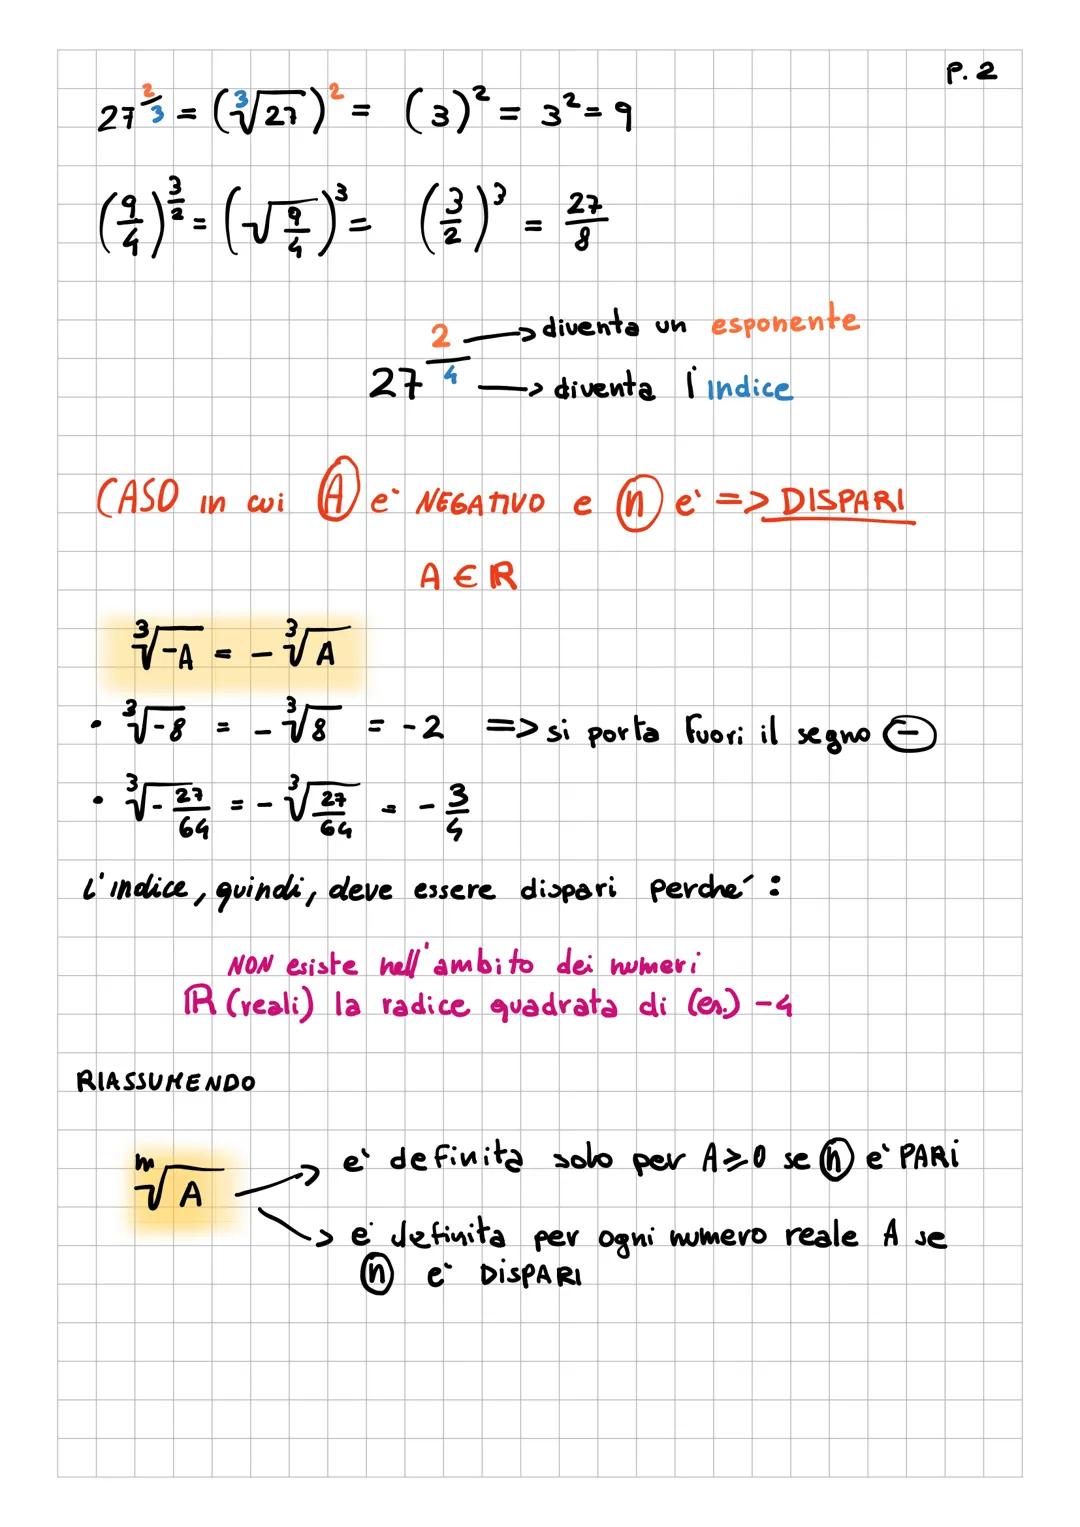 P. 2
27^{2/3} = (∛27)^2 = (3)^2 = 3^2 = 9
(9/4)^{3/2} = (√(9/4))^3 = (3/2)^3 = 27/8
2 → diventa un esponente
27^{2/4} 4 → diventa l'indice
CASO in cui A e' NEGATIVO e n e' => DISPARI
A ∈ ℝ
∛-A = -∛A
• ∛-8 = -∛8 = -2 => si porta fuori il segno -
• ∛-27/64 = -∛27/64 = -3/4
L'indice, quindi, deve essere dispari perche' :
NON esiste nell'ambito dei numeri
ℝ (reali) la radice quadrata di (es.) -4
RIASSUMENDO
ⁿ√A → e' definita solo per A ≥ 0 se n e' PARI
→ e' definita per ogni numero reale A se
n e' DISPARI